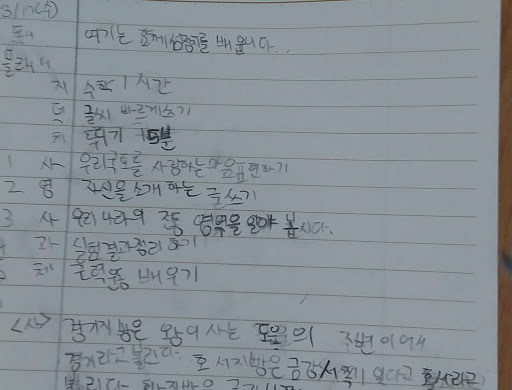 3/17(수)
독서 여기는 훈계 성경를 배웁니다..
플래너
지 수학 1시간
덕 글씨 바르게쓰기
체 뛰기 15분
1 사 우리국토를 사랑하는마음표현하기
2 영 자신을 소개하는 글쓰기
3 사 우리 나라의 전통 영역을 알아 봅시다.
4 과 실험결과정리하기
체 근력운동 배우기
<사> 경기지방은 왕이 사는 도읍의 주변이어서
경기라고 불린다. 호서지방은 금강서쪽기 있다고 호서라고
불리다